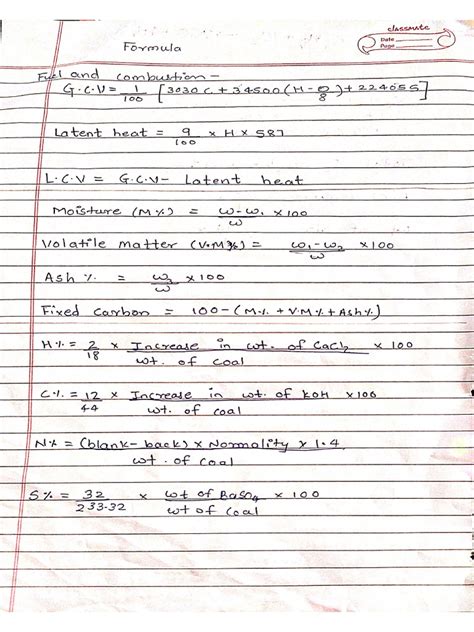 classmate
Date
Page
Formula
Fuel and combustion -
G.C.V = 1/100 [3030 C + 34500 (H - O/8) + 2240 S S]
Latent heat = 9/100 × H × 587
L.C.V = G.C.V - Latent heat
Moisture (M%) = w - w₁/w × 100
Volatile matter (V.M%) = w₁ - w₂/w × 100
Ash % = w₃/w × 100
Fixed Carbon = 100 - (M% + V.M% + Ash%)
H% = 2/18 × Increase in wt. of CaCl₂/wt. of Coal × 100
C% = 12/44 × Increase in wt. of KOH/wt. of coal × 100
N% = (blank - back) × Normality × 1.4/wt. of Coal
S% = 32/233.32 × wt of BaSO₄/wt of Coal × 100